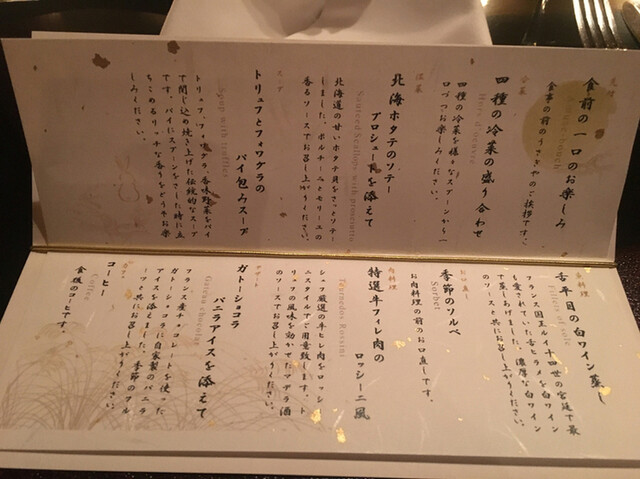 先付
食前の一口のお楽しみ
食事の前のうさぎやのご挨拶です。
冷菜
四種の冷菜の盛り合わせ
四種の冷菜を様々なスプーンから一
口づつお楽しみください。
温菜
北海ホタテのソテー
プロシュートを添えて
Sauteed Scallops with prosciutto
北海道の甘いホタテ貝をさっとソテー
しました。ポルチーニとモリーユの
香るソースでお召し上がりください。
スープ
トリュフとフォワグラの
パイ包みスープ
Soup with truffles
トリュフ、フォワグラ、香味野菜をパイ
で閉じ込め焼き上げた伝統的なスープ
です。パイにスプーンをさした時に立
ちこめるリッチな香りをどうぞお楽
しみください。
魚料理
舌平目の白ワイン蒸し
フランス国王ルイ十四世の宮廷で最
も愛されていた舌ヒラメを白ワイン
で蒸しあげました。濃厚な白ワイン
のソースと共にお召し上がりください。
お口直し
季節のソルベ
Sorbet
お肉料理の前のお口直しです。
肉料理
特選牛フィレ肉の
ロッシーニ風
Tournedos Rossini
シェフ厳選の牛ヒレ肉をロッシー
ニスタイルでご用意致します。ト
リュフの風味を効かせたマデラ酒
のソースでお召し上がりください。
デザート
ガトーショコラ
バニラアイスを添えて
Gateau chocolat
フランス産チョコレートを使った
ガトーショコラに自家製のバニラ
アイスを添えました。季節のフル
ーツと共にお召し上がりください。
コーヒー
Coffee
食後のコーヒーです。